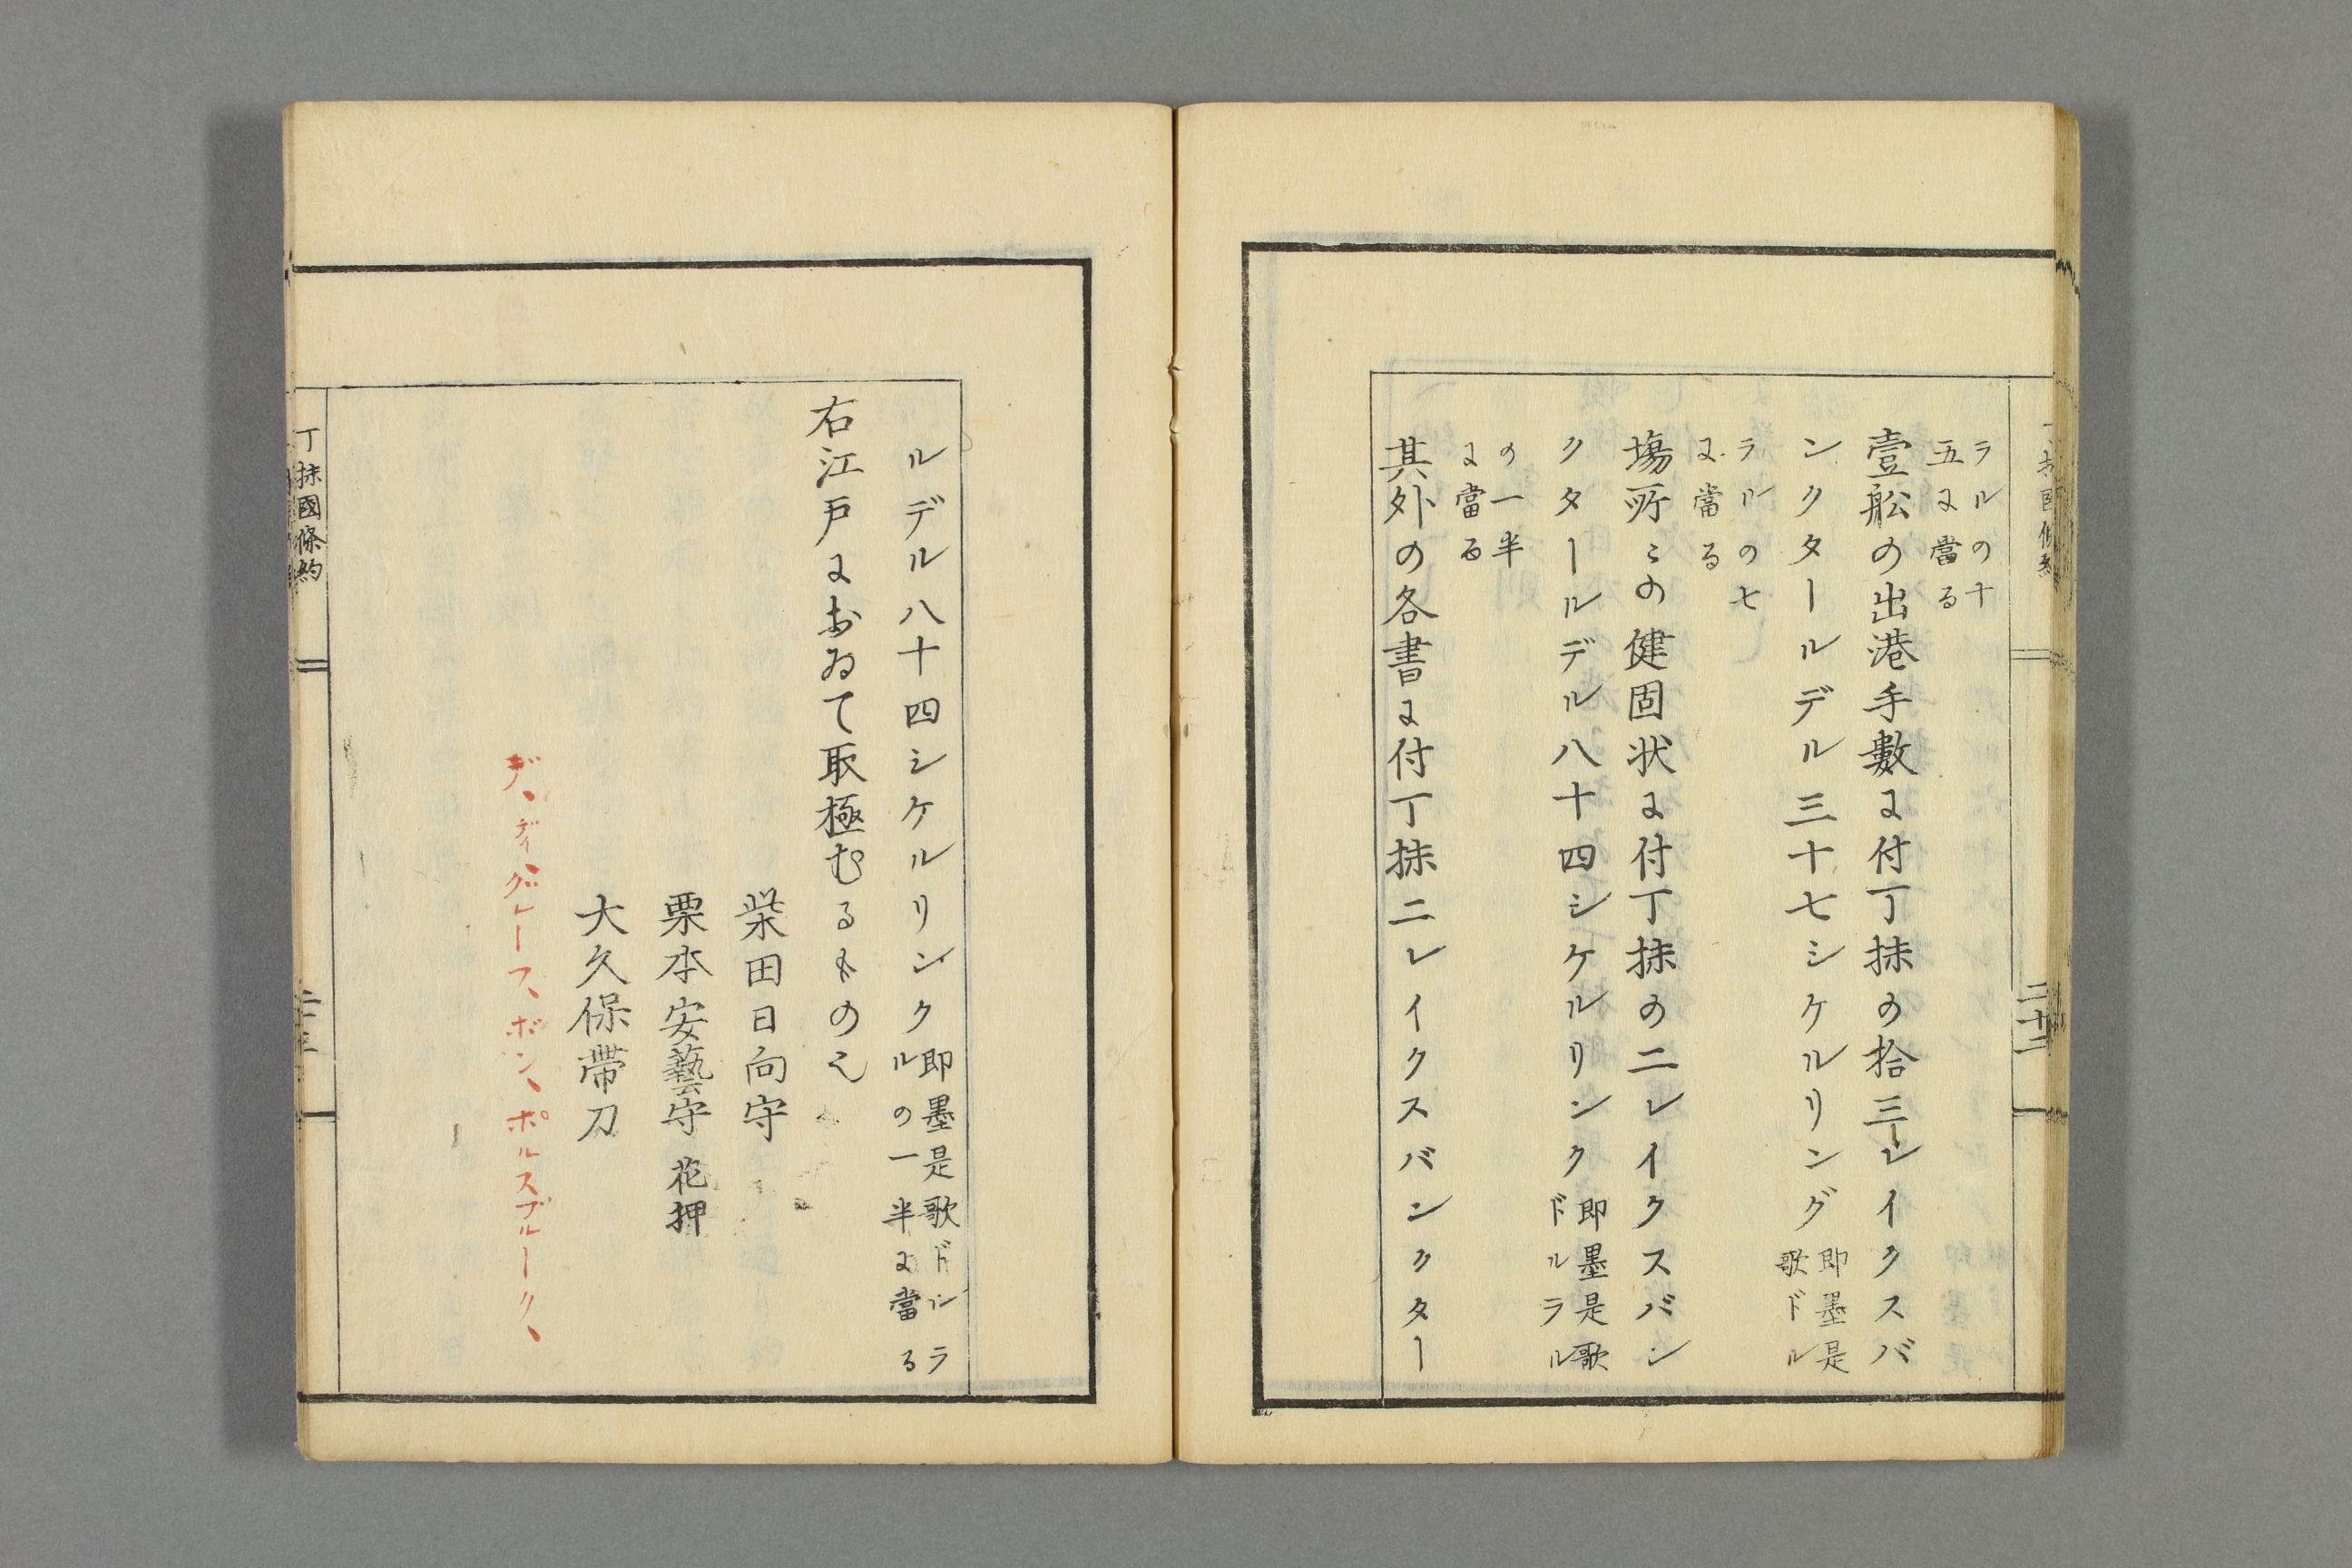 ラルの十
五に當る
壹舩の出港手數に付丁抹の拾三レイクスバ
ンクタールデル三十七シケルリング即墨是歌ドル
ラルの七
に當る
塲所々の健固状に付丁抹の二レイクスバン
クタールデル八十四シケルリンク即墨是歌ドルラル
の一半
に當る
其外の各書に付丁抹二レイクスバンクター
二十二
ルデル八十四シケルリンク即墨是歌ドルラルの一半に當る
右江戸におゐて取極むるもの也
柴田日向守
栗本安藝守 花押
大久保帶刀
デ、デイ、グレーフ、ボン、ポルスブルーク、
丁抹國條約